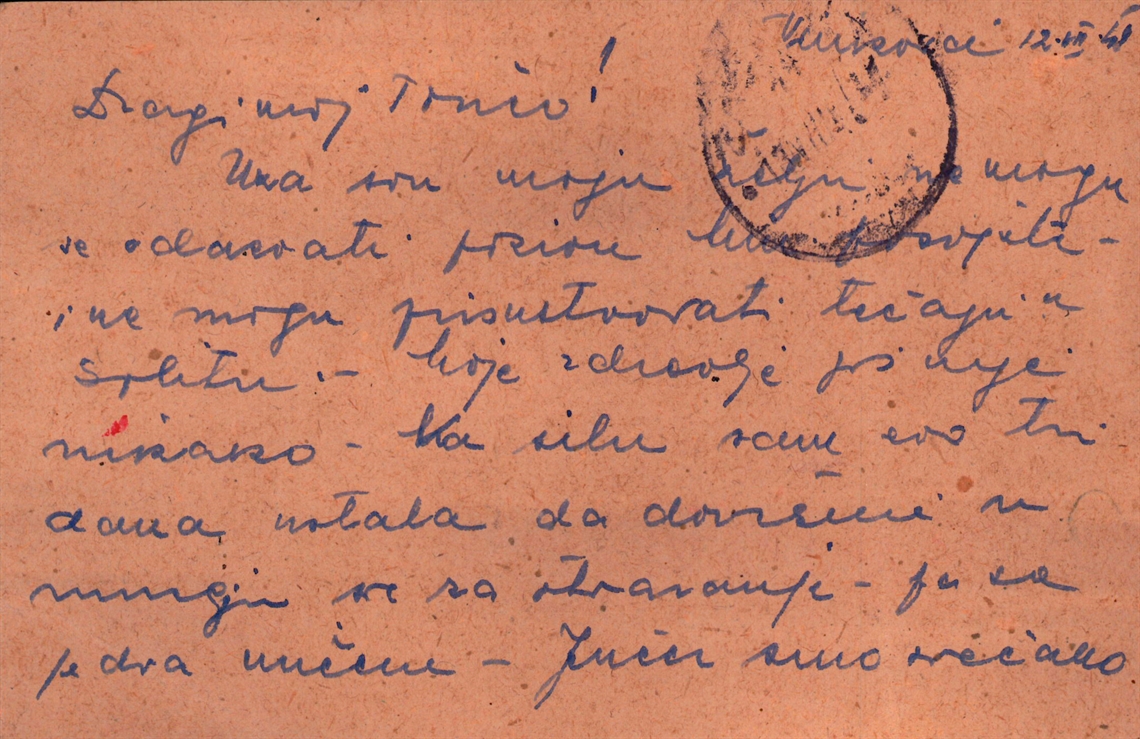 Vinkovci 12. III. 48
Dragi moj Tonćo!
Uza svu moju želju ne mogu
se odazvati pozivu
i ne mogu prisustvovati tečaju u
Splitu. – Moje zdravlje još nije
nikako – Na silu sam evo tri
dana ustala da dovršim
se za otvaranje – pa se
jedva mučim – Jučer smo svečano